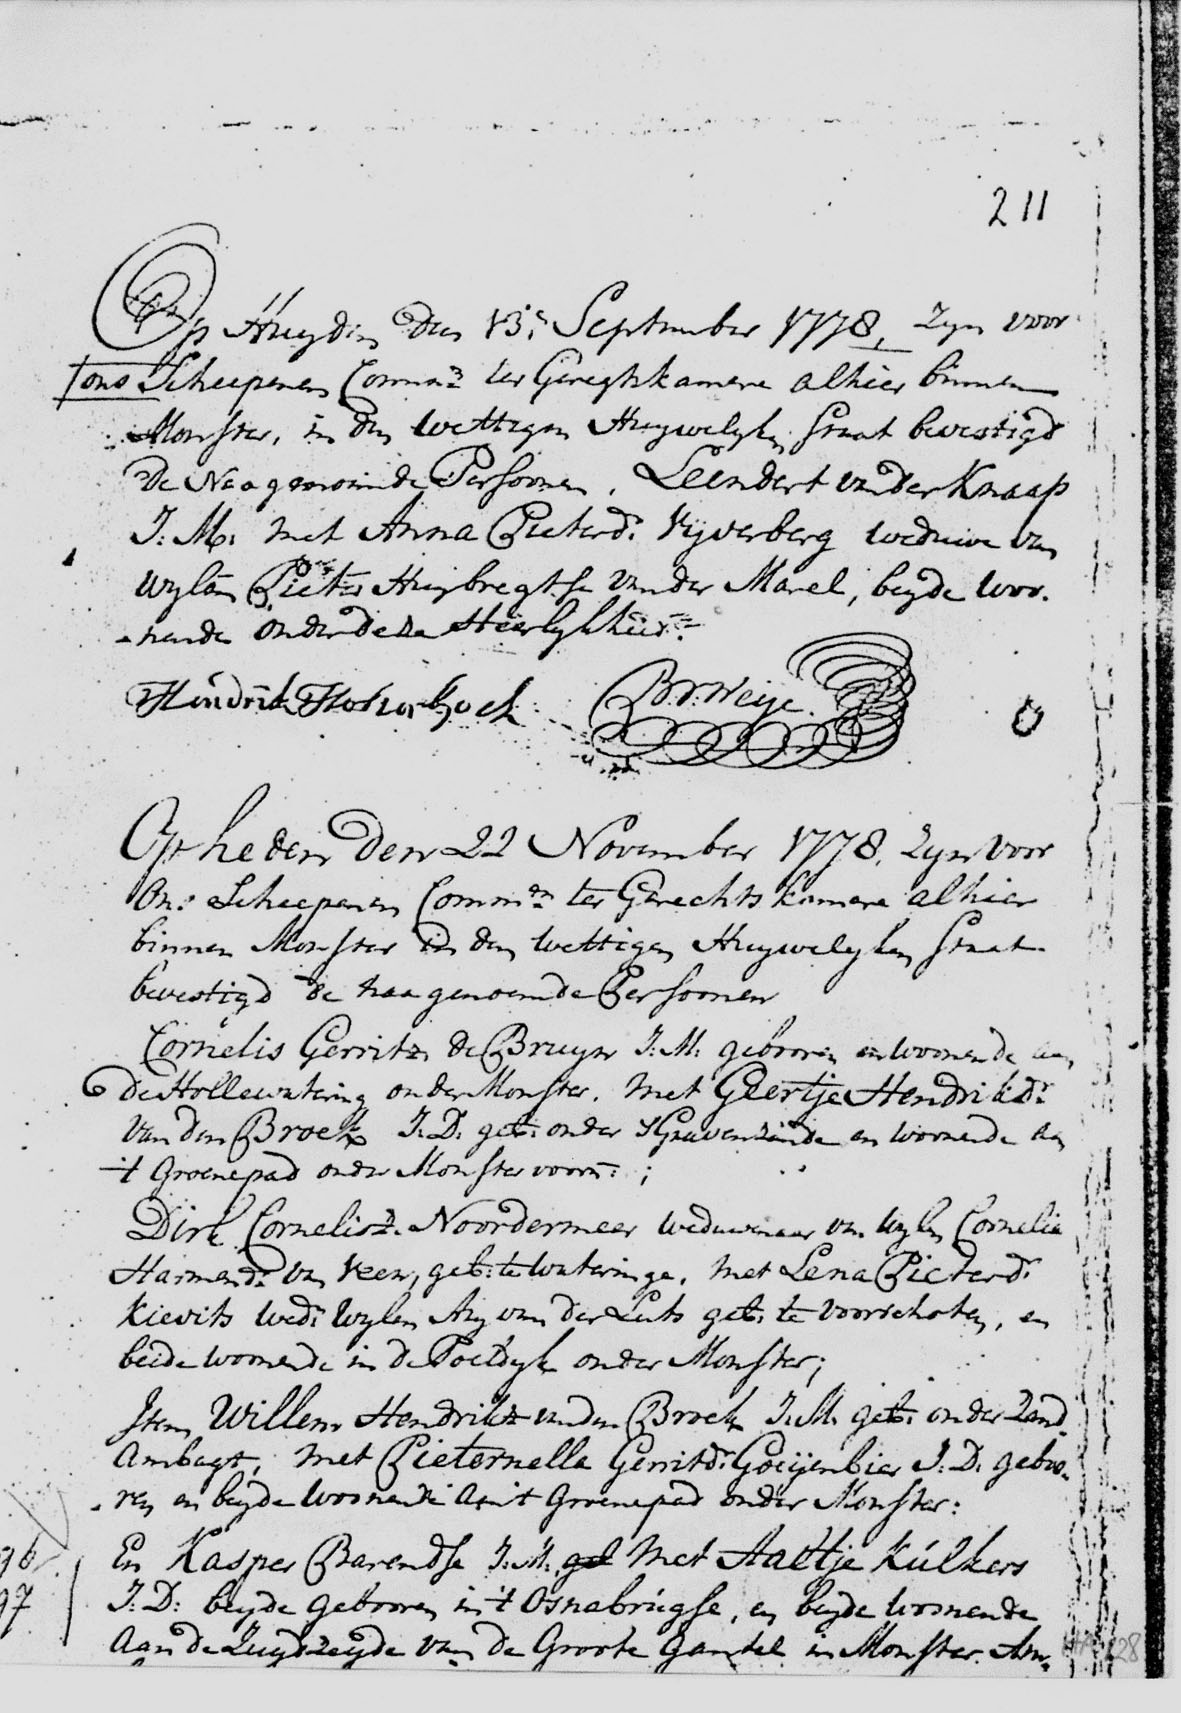 211
Op Huyden Den 13e September 1778, Zyn voor
ons Scheepenen Commn ter Geregtskamere alhier binnen
Monster, in den Wettigen Huywelyken Staat bevestigd
De Naagenoemde Persoonen, Leendert vander Knaap
J: M: met Anna Pieterd: Vyverberg weduwe van
Wylen Pieter Huybregtse vander Marel, beyde woo-
nende onder deze Heerlykheid
Hendrik
Op heden Den 22 November 1778, Zyn Voor
Ons Scheepenen Commen ter Gerechtskamere alhier
binnen Monster in den Wettigen Huywelyken Staat
bevestigd de naagenoemde Persoonen
Cornelis Gerritz de Bruyn J: M: gebooren en woonende aan
De Hollewatering onder Monster, met Geertje Hendrikdr
van den Broek J: D: geb: onder sGravenzande en woonende aan
't Groenepad onder Monster voorn:;
Dirk Cornelisz. Noordermeer weduwenaar van Wylen Cornelia
Harmend: van Veen, geb: te Wateringe, met Lena Pieterd:
Kievits wed: Wylen Ary van der Luts geb: te Voorschoten, en
beide woonende in de Poeldyk onder Monster;
Item Willem Hendrikz vanden Broek J: M: geb: onder Zand
Ambagt, met Pieternella Gerritd: Goeijenbier J: D: geboo-
ren en beyde woonende aan 't Groenepad onder Monster:
En Kasper Barendse J: M: gel met Aaltje Kulkers
J: D: beyde gebooren in 't Osnabrugse, en beyde woonende
96
97
Aan de Zuydzeyde van de Groote Gantel in Monster Am-